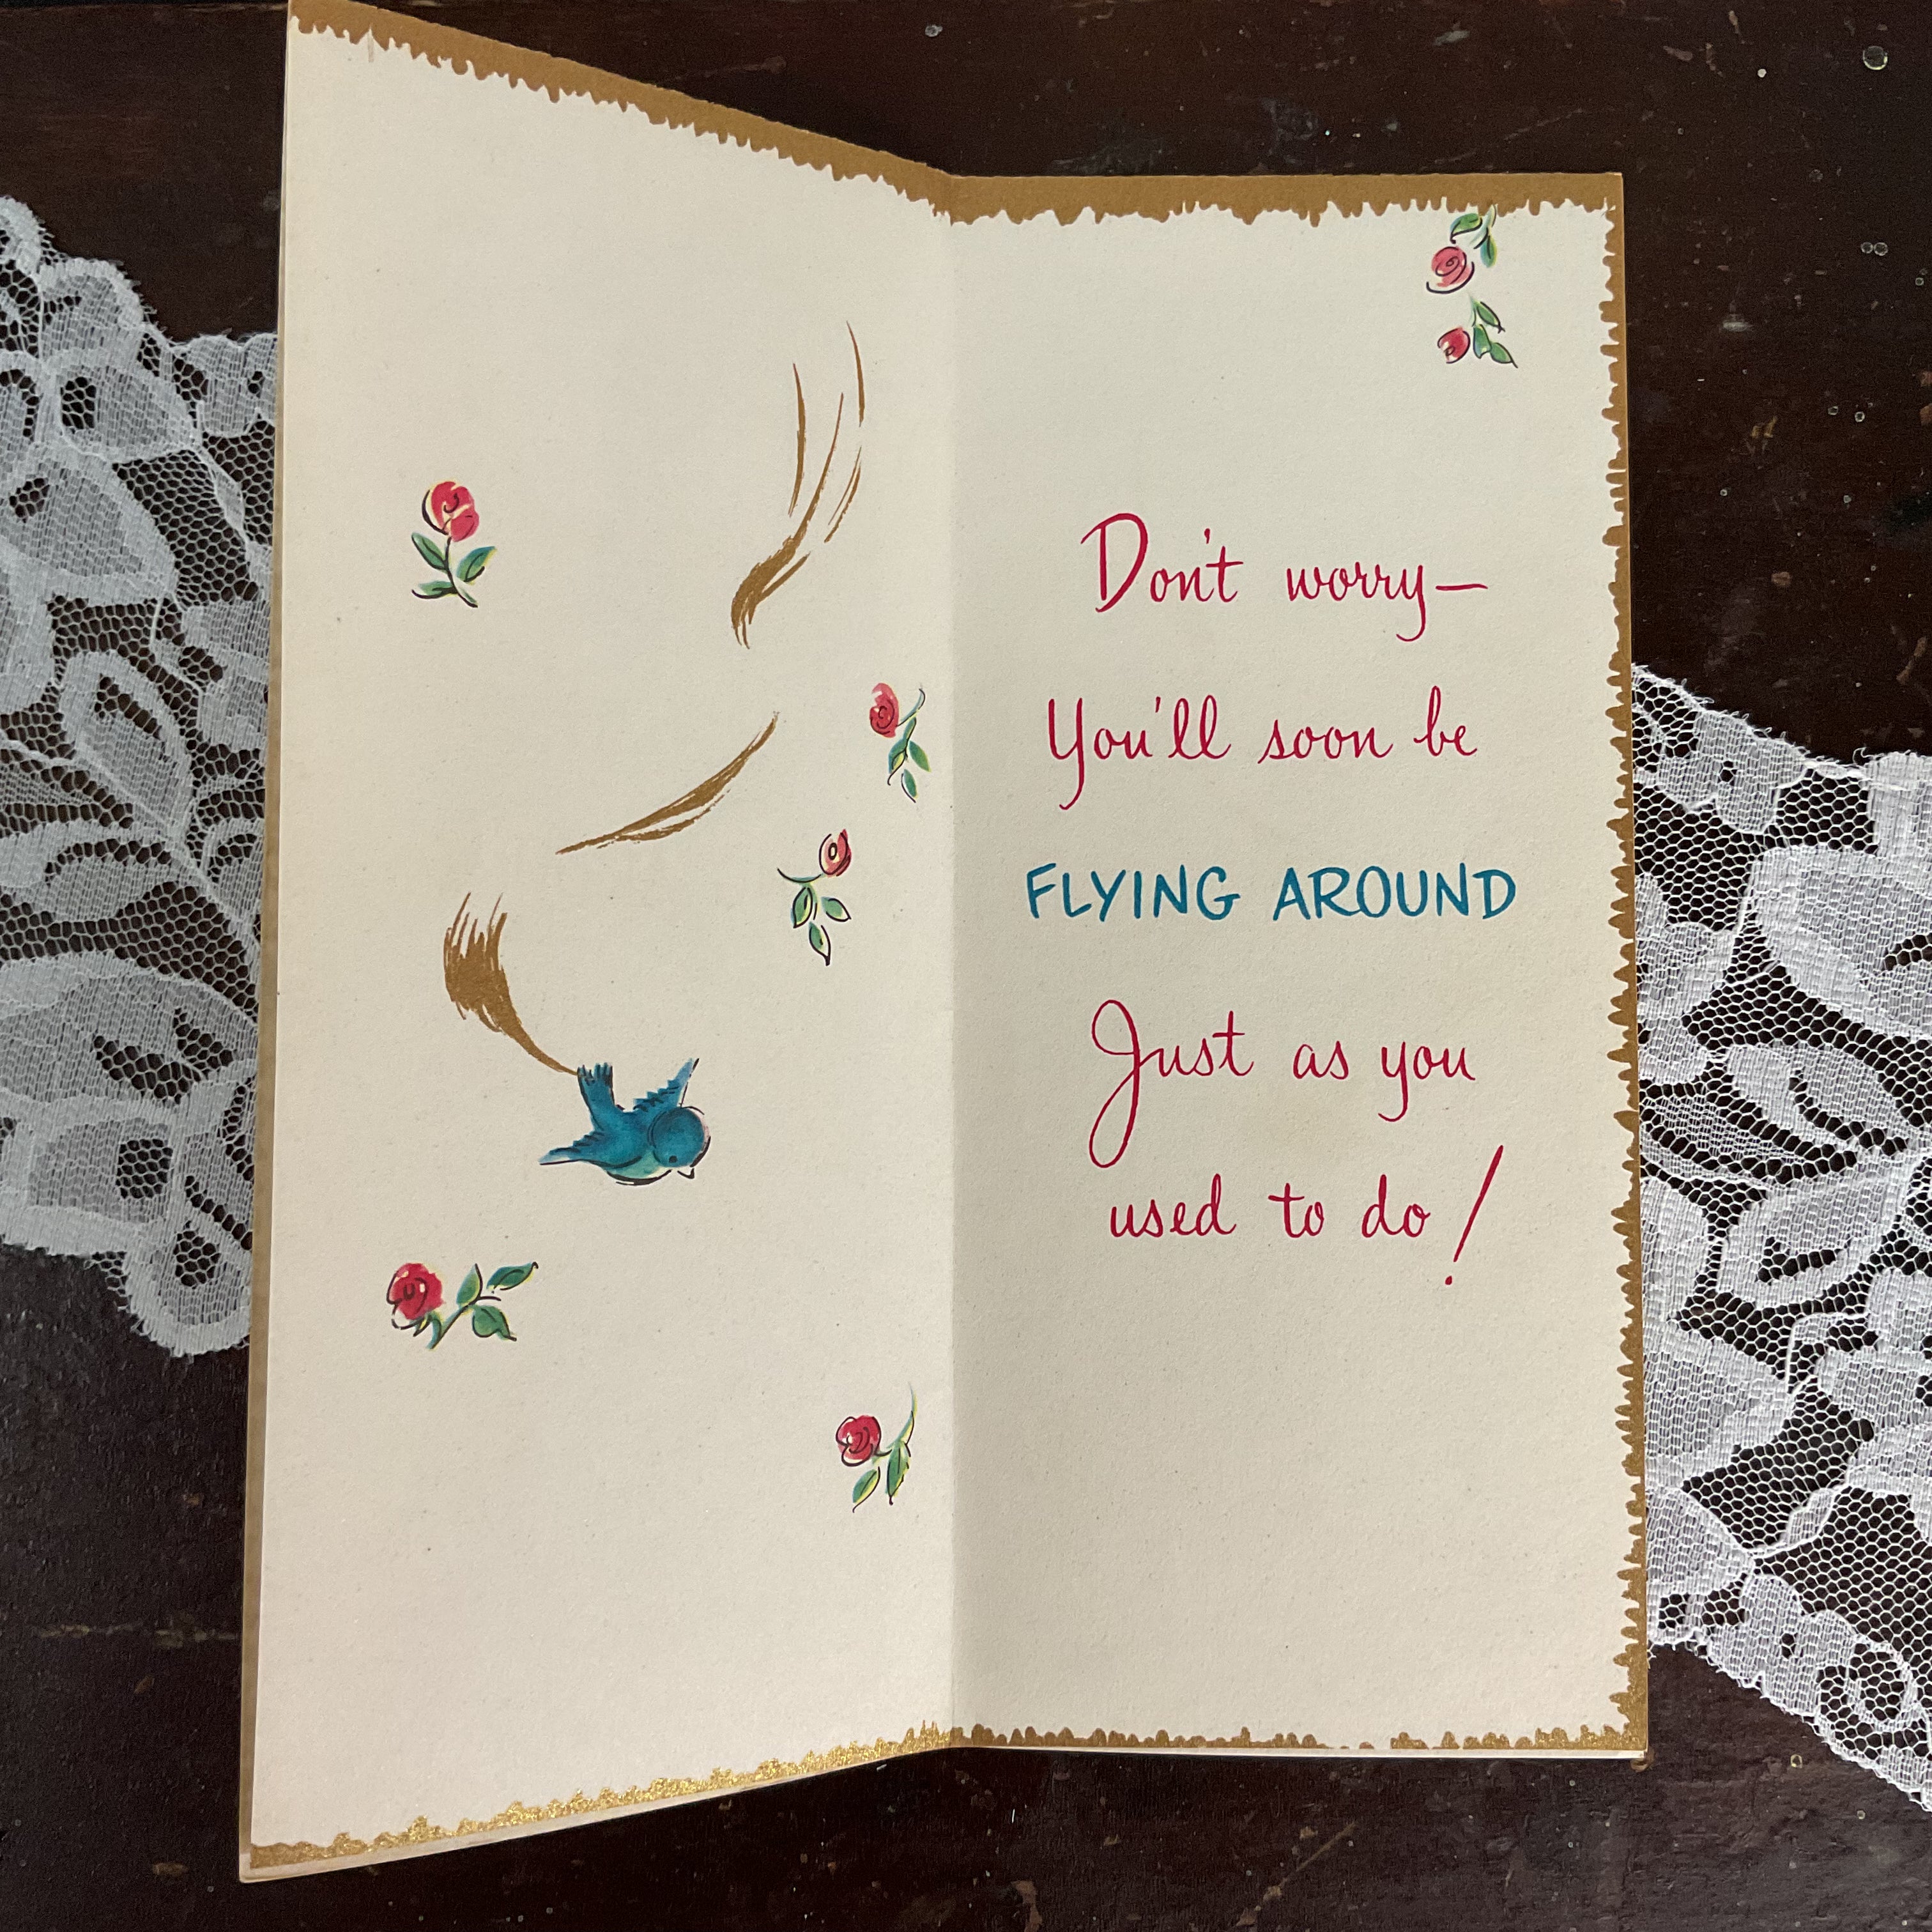 Don't worry—
You'll soon be
FLYING AROUND
Just as you
used to do!